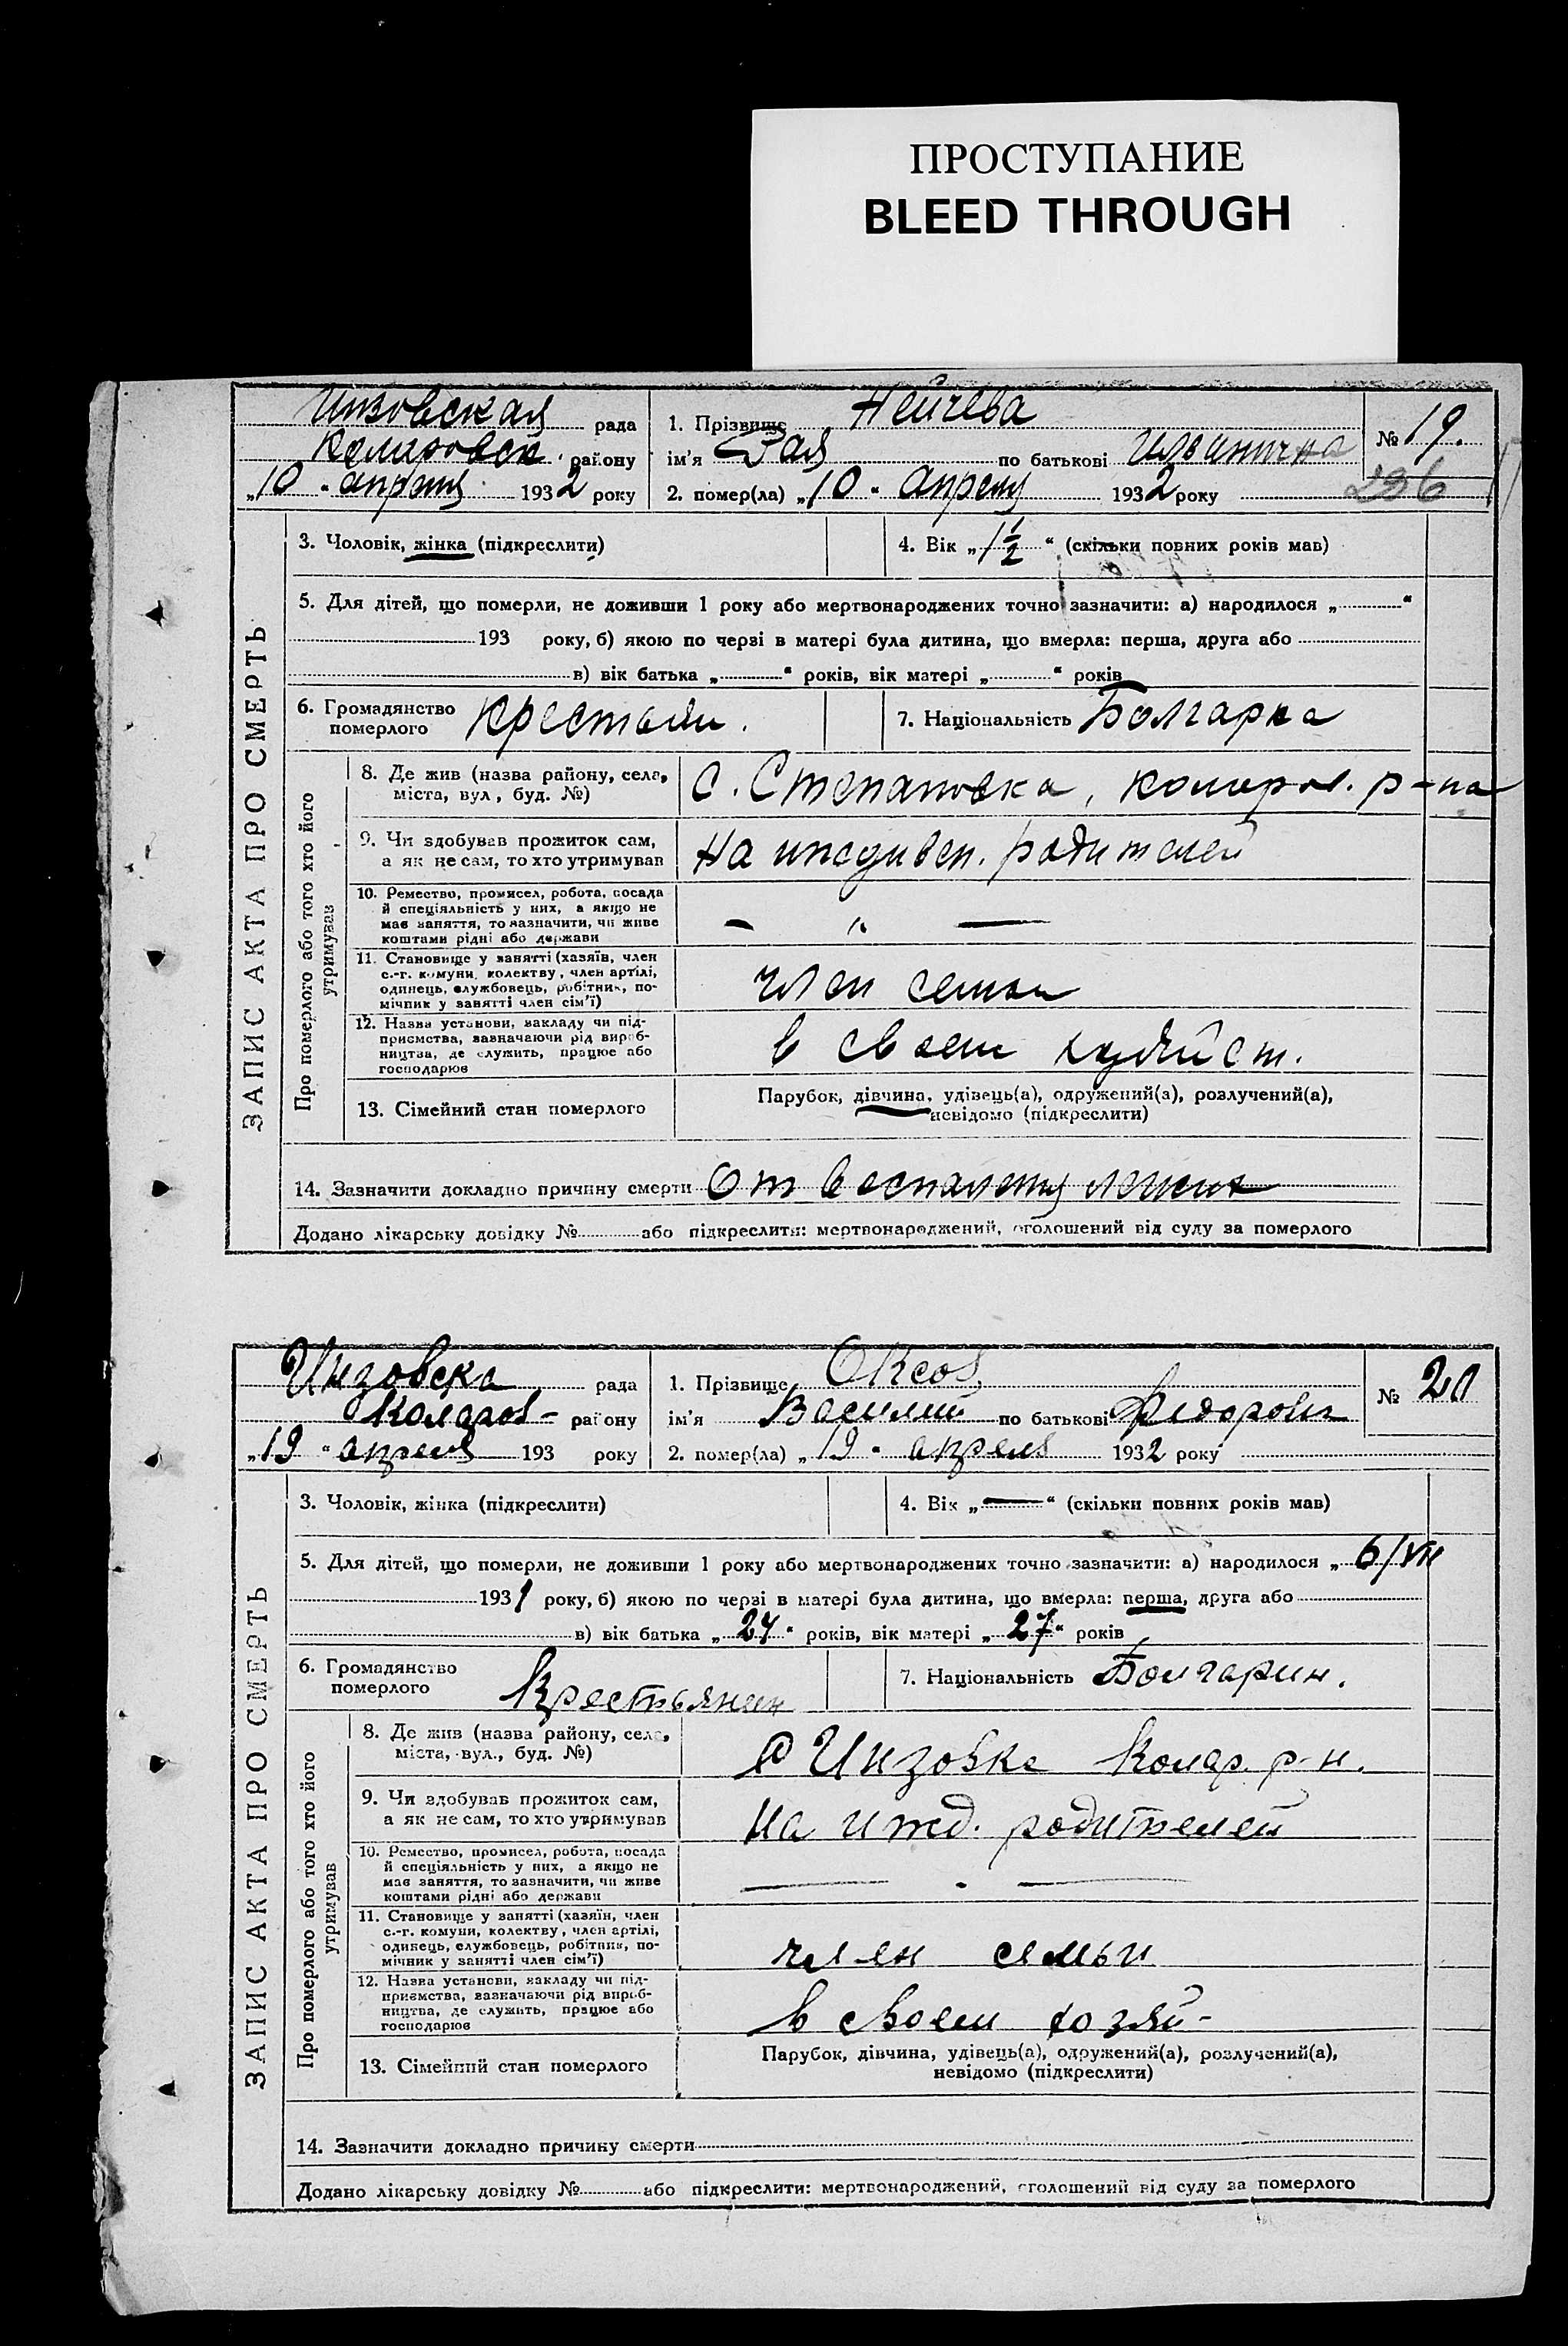 ПРОСТУПАНИЕ
BLEED THROUGH
Инзовская рада
Коларовск. району
„10“ апреля 1932 року
1. Прізвище Нейчева
ім'я Зая по батькові Ильинична
№ 19.
2. помер(ла) „10“ Апреля 1932 року
296
ЗАПИС АКТА ПРО СМЕРТЬ
3. Чоловік, жінка (підкреслити)
4. Вік „1 1/2“ (скільки повних років мав)
5. Для дітей, що померли, не доживши 1 року або мертвонароджених точно зазначити: а) народилося „ “
193 року, б) якою по черзі в матері була дитина, що вмерла: перша, друга або
в) вік батька „ “ років, вік матері „ “ років
6. Громадянство померлого Крестьян.
7. Національність Болгарка
Про померлого або того хто його утримував
8. Де жив (назва району, села,
міста, вул., буд. №)
С. Степановка, коларов. р-на
9. Чи здобував прожиток сам,
а як не сам, то хто утримував
На иждивен. родителей
10. Ремество, промисел, робота, посада
й спеціяльність у них, а якщо не
має заняття, то зазначити, чи живе
коштами рідні або держави
– " —
11. Становище у занятті (хазяїн, член
с.-г. комуни, колективу, член артілі,
одинець, службовець, робітник, по-
мічник у занятті член сім'ї)
член семьи
12. Назва установи, закладу чи під-
приємства, зазначаючи рід вироб-
ництва, де служить, працює або
господарює
в своем
13. Сімейний стан померлого
Парубок, дівчина, удівець(а), одружений(а), розлучений(а),
невідомо (підкреслити)
14. Зазначити докладно причину смерти От воспаления легких
Додано лікарську довідку № або підкреслити: мертвонароджений, оголошений від суду за померлого
Инзовска рада
Коларов- району
„19“ апреля 193 року
1. Прізвище Оксов
ім'я Василий по батькові Федоров
№ 20
2. помер(ла) „19“ апреля 1932 року
ЗАПИС АКТА ПРО СМЕРТЬ
3. Чоловік, жінка (підкреслити)
4. Вік „—“ (скільки повних років мав)
5. Для дітей, що померли, не доживши 1 року або мертвонароджених точно зазначити: а) народилося „6/VII
1931 року, б) якою по черзі в матері була дитина, що вмерла: перша, друга або
в) вік батька „24“ років, вік матері „27“ років
6. Громадянство померлого Крестьянин
7. Національність Болгарин.
Про померлого або того хто його утримував
8. Де жив (назва району, села,
міста, вул., буд. №)
С Инзовка Колар. р-н.
9. Чи здобував прожиток сам,
а як не сам, то хто утримував
На ижд. родителей
10. Ремество, промисел, робота, посада
й спеціяльність у них, а якщо не
має заняття, то зазначити, чи живе
коштами рідні або держави
— . —
11. Становище у занятті (хазяїн, член
с.-г. комуни, колективу, член артілі,
одинець, службовець, робітник, по-
мічник у занятті член сім'ї)
член семьи
12. Назва установи, закладу чи під-
приємства, зазначаючи рід вироб-
ництва, де служить, працює або
господарює
в своем хозяй-
13. Сімейний стан померлого
Парубок, дівчина, удівець(а), одружений(а), розлучений(а),
невідомо (підкреслити)
14. Зазначити докладно причину смерти
Додано лікарську довідку № або підкреслити: мертвонароджений, оголошений від суду за померлого